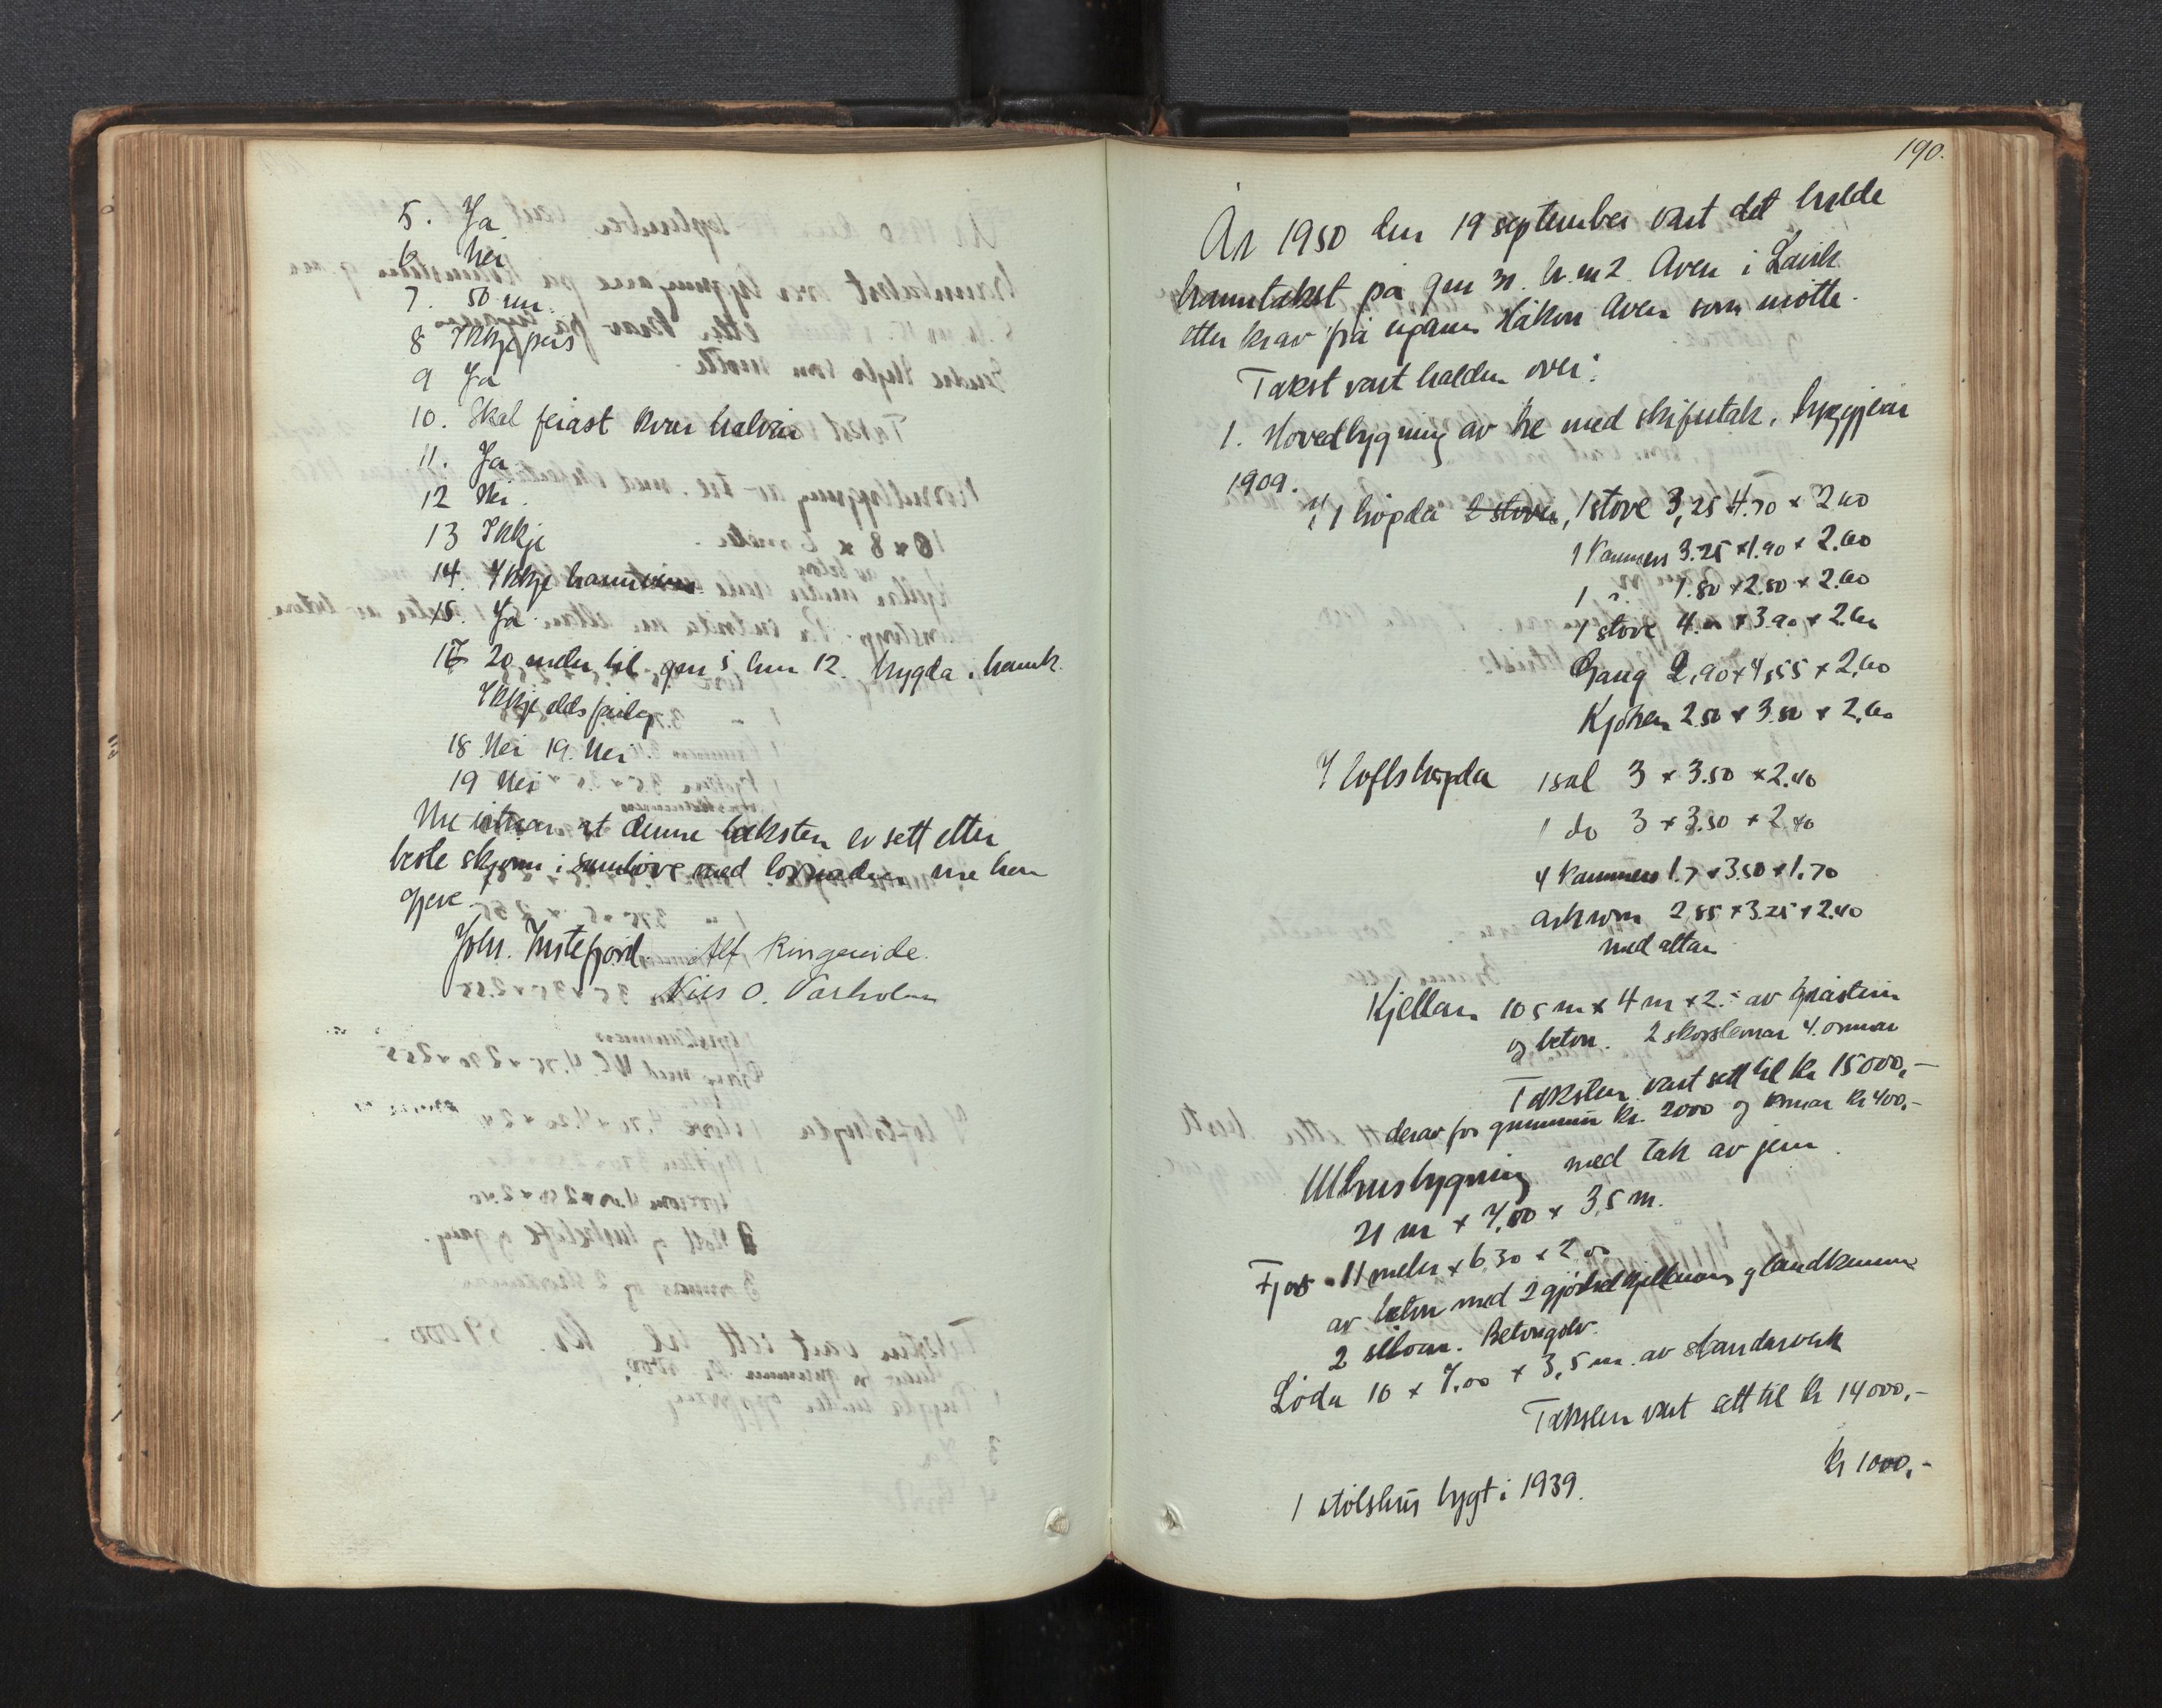 5. Ja
6 Nei
7. 50 mm.
8 Ikkje peis
9 Ja
10. Skal feiast kvar halvår
11. Ja
12 Nei.
13 Ikkje
14. Ikkje
15. Ja
20 meter til gnr 5 bnr 12. bygda.
Ikkje eldsfarleg
18 Nei 19. Nei
19 Nei
Me vitnar at denne taksten er sett etter
beste skjønn i samhøve med lovnaden me her
gjeve
Johs. Instefjord Alf Ringereide.
Nils O. Varholm
190.
År 1950 den 19 september vart det halde
branntakst på gnr 31. br. nr 2. Aven i Lavik
etter krav frå eigaren Håkon Aven som møtte.
Takst vart halden over:
1. Hovedbygning av tre med skifertak, byggjeår
1909.
I 1 høgda 2 stover, 1 stove 3,25 4.70 x 2.60
1 kammers 3.25 x 1.90 x 2.60
1 " 1.80 x 2.80 x 2.60
1 stove 4.00 x 3.90 x 2.60
Gang 2,90 x 4,55 x 2,60
Kjøken 2.50 x 3.50 x 2,60
I loftshøgda 1 sal 3 x 3.50 x 2.40
1 do 3 x 3.50 x 2.40
4 kammers 1.7 x 3.50 x 1.70
arkrom 2,85 x 3.25 x 2.40
med altan
Kjellar 10 5 m x 4 m x 2.- av gråstein
og betong. 2 skorsteinar 4. omnar
Taksten vart sett til kr 15000,-
derav for grunnmur kr. 2000 og omnar kr 400,-
Uthusbygning med tak av jern
21 m x 7,00 x 3,5 m.
Fjøs 11 meter x 6.30 x 2.00
av betong med 2 gjødselkjellarar og landkummar
2 siloar. Betonggolv.
Løda 10 x 7,00 x 3,5 m. av standarverk
Taksten vart sett til kr 14000,-
kr 1000,-
1 stølshus bygt i 1939.